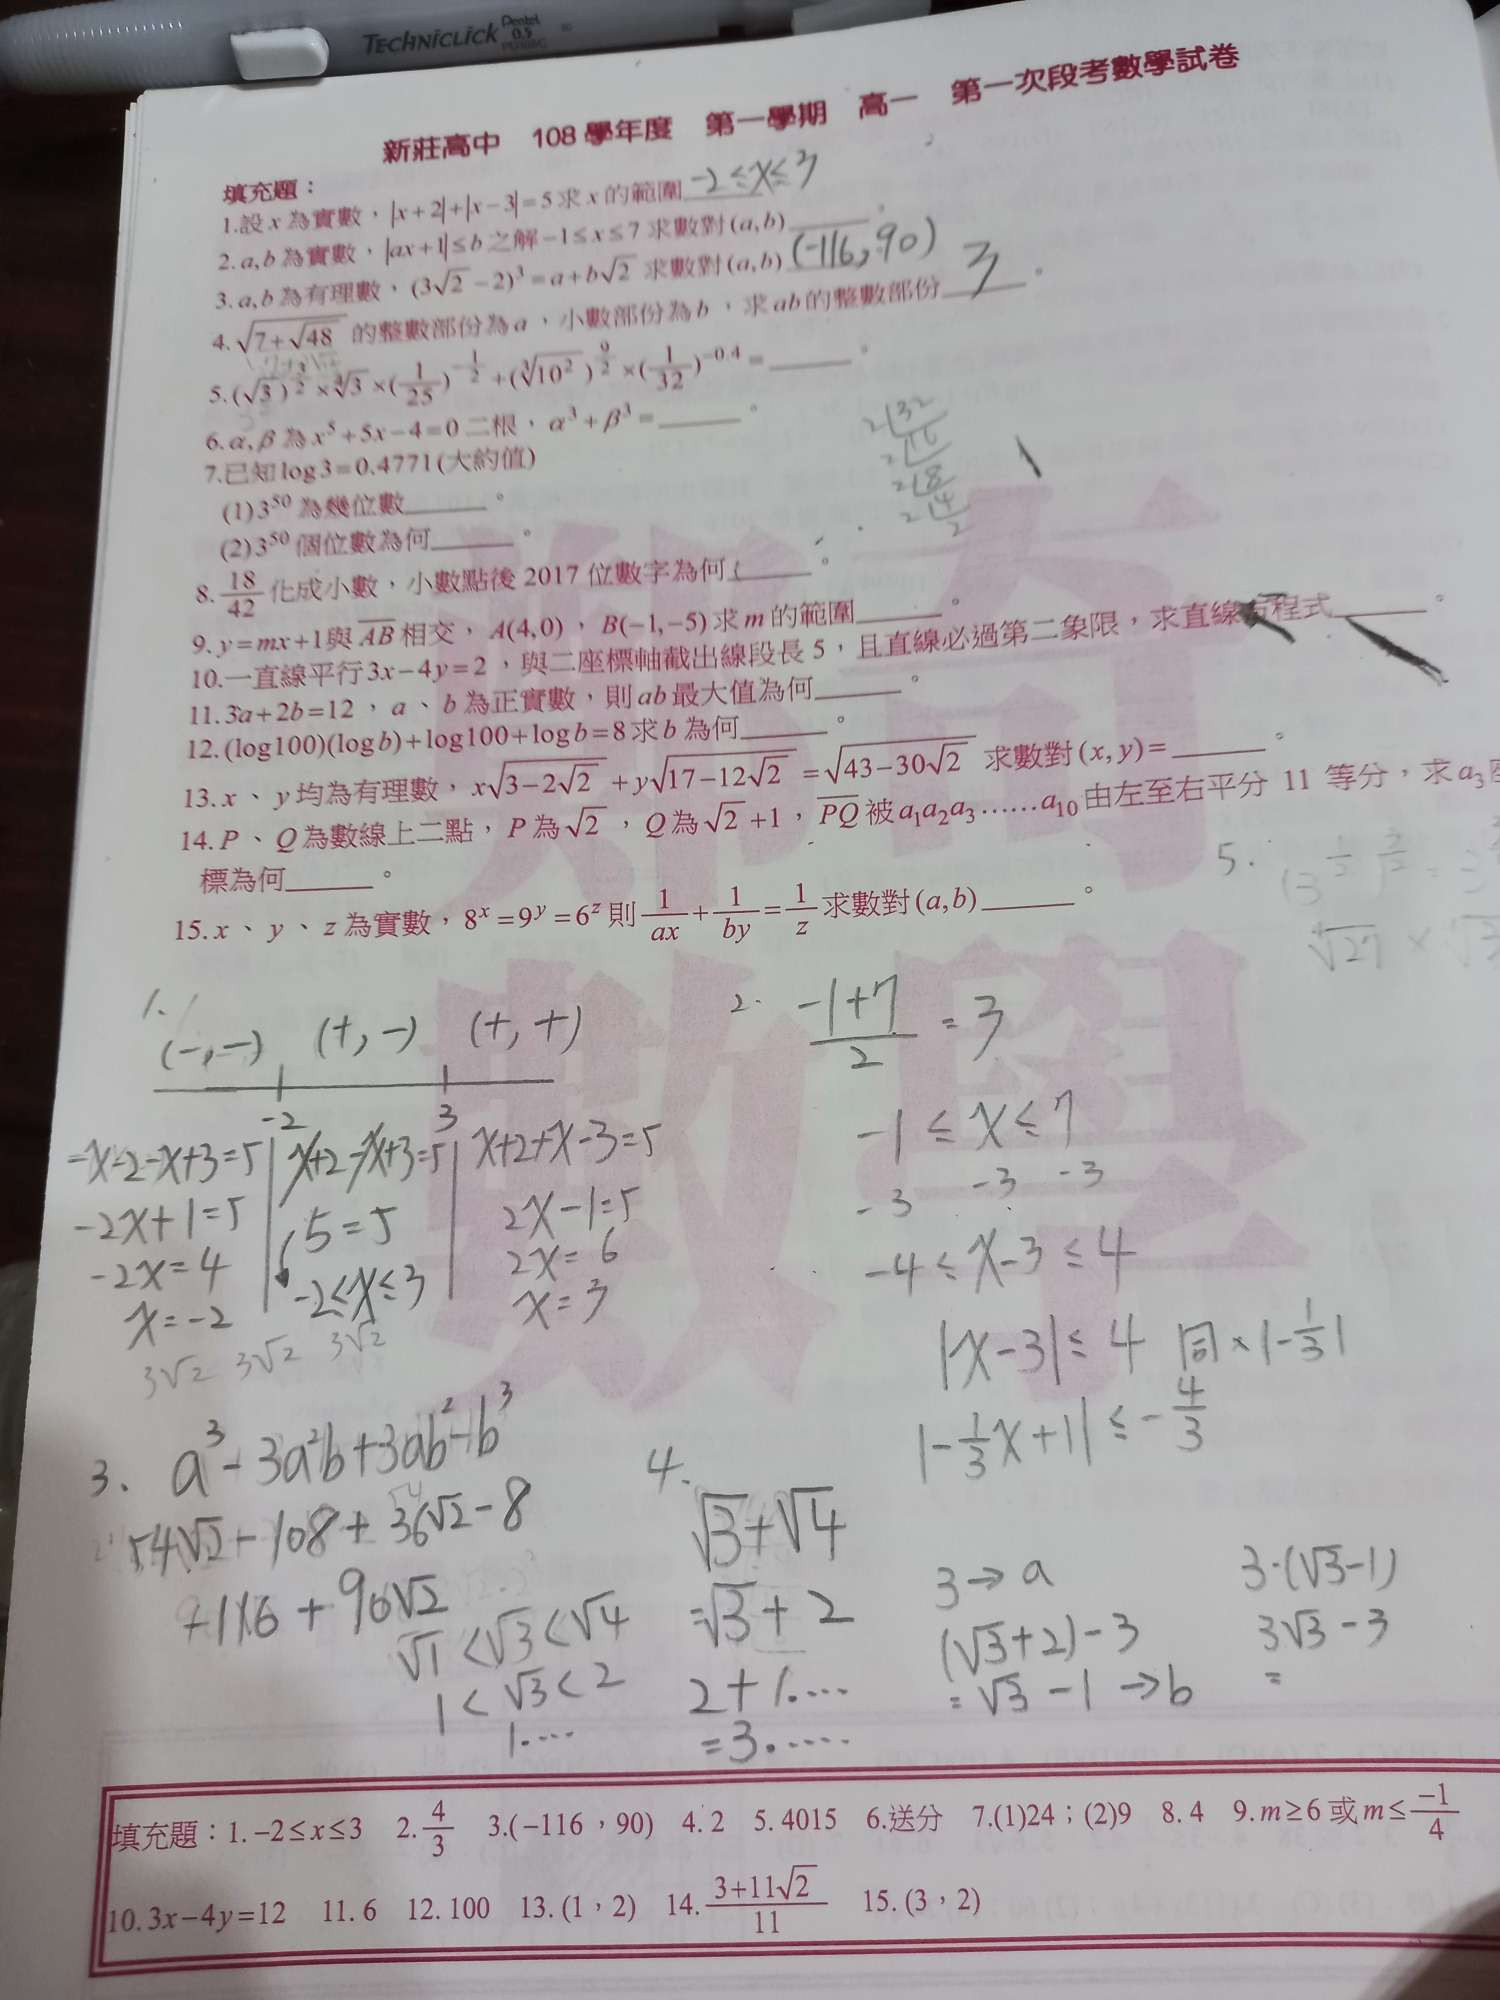 TECHNICLICK Pentel 0.5
新莊高中 108 學年度 第一學期 高一 第一次段考數學試卷
填充題：
1.設 x 為實數，|x+2|+|x−3|=5 求 x 的範圍 -2≤x≤3
2.a,b 為實數，|ax+1|≤b 之解 −1≤x≤7 求數對(a,b)______。
3.a,b 為有理數，(3√2−2)³=a+b√2 求數對(a,b) (-116,90)
4.√(7+√48) 的整數部份為 a，小數部份為 b，求 ab 的整數部份 3 。
5.(√3)^(3/2)×∜3×(1/25)^(−1/2)+(∛10²)^(9/2)×(1/32)^(−0.4)=______。
6.α,β 為 x⁵+5x−4=0 二根，α³+β³=______。
7.已知 log3=0.4771(大約值)
(1)3⁵⁰ 為幾位數______。
(2)3⁵⁰ 個位數為何______。
8. 18/42 化成小數，小數點後 2017 位數字為何______。
9.y=mx+1 與 AB 相交，A(4,0)，B(−1,−5) 求 m 的範圍______。
10.一直線平行 3x−4y=2，與二座標軸截出線段長 5，且直線必過第二象限，求直線方程式______。
11.3a+2b=12，a、b 為正實數，則 ab 最大值為何______。
12.(log100)(logb)+log100+logb=8 求 b 為何______。
13.x、y 均為有理數，x√(3−2√2)+y√(17−12√2)=√(43−30√2) 求數對(x,y)=______。
14.P、Q 為數線上二點，P 為√2，Q 為√2+1，PQ 被 a₁a₂a₃……a₁₀ 由左至右平分 11 等分，求 a₃
標為何______。
15.x、y、z 為實數，8ˣ=9ʸ=6ᶻ 則 1/ax+1/by=1/z 求數對(a,b)______。
2|32
2|16
2|8
2|4
2
5.
∜27 ×
1.
(-,-) (+,-) (+,+)
-2 3
-x-2-x+3=5 x+2-x+3=5 x+2+x-3=5
-2x+1=5 5=5 2x-1=5
-2x=4 -2≤x≤3 2x=6
x=-2 x=3
3√2 3√2 3√2
2. (-1+7)/2 = 3
-1≤x≤7
-3 -3 -3
-4≤x-3≤4
|x-3|≤4 同×|-1/3|
|-1/3x+1|≤-4/3
3. a³-3a²b+3ab²-b³
54√2-108+36√2-8
-116+90√2
4. √3+√4
=√3+2
2+1.…
=3.……
√1<√3<√4
1<√3<2
1.…
3→a
(√3+2)-3
=√3-1→b
3·(√3-1)
3√3-3
=
填充題：1.−2≤x≤3 2.4/3 3.(−116，90) 4.2 5.4015 6.送分 7.(1)24；(2)9 8.4 9.m≥6 或 m≤−1/4
10.3x−4y=12 11.6 12.100 13.(1，2) 14.(3+11√2)/11 15.(3，2)
數學